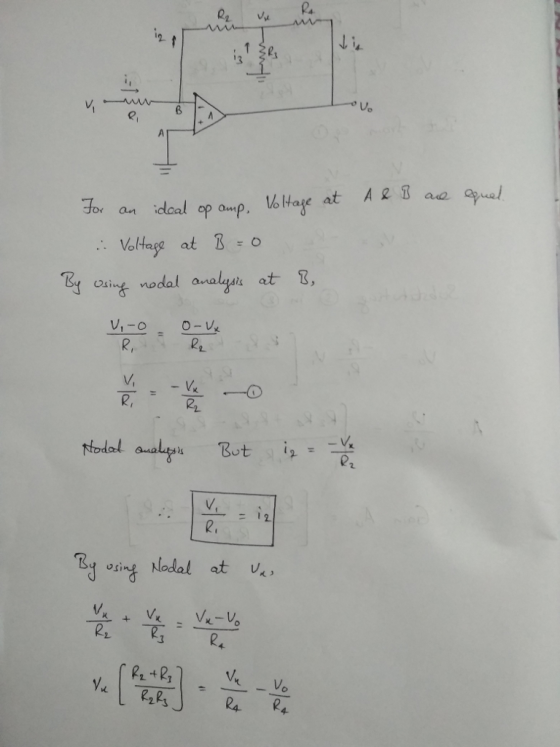 R2 Vx R4
i2 i3 R3 i4
i1
V1 R1 B - A + A Vo
For an ideal op amp, Voltage at A & B are equal
∴ Voltage at B = 0
By using nodal analysis at B,
(V1-0)/R1 = (0-Vx)/R2
V1/R1 = -Vx/R2 —①
Nodal analysis But i2 = -Vx/R2
∴ V1/R1 = i2
By using Nodal at Vx,
Vx/R2 + Vx/R3 = (Vx-Vo)/R4
Vx [(R2+R3)/(R2R3)] = Vx/R4 - Vo/R4